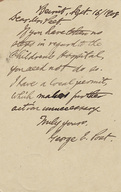 Sept. 16/1908
Dear Mr Peet
If you have taken no
steps in regard to the
Children's Hospital,
you need not do so.
I have a local permit,
which makes further
action unnecessary.
Truly yours
George C. Post